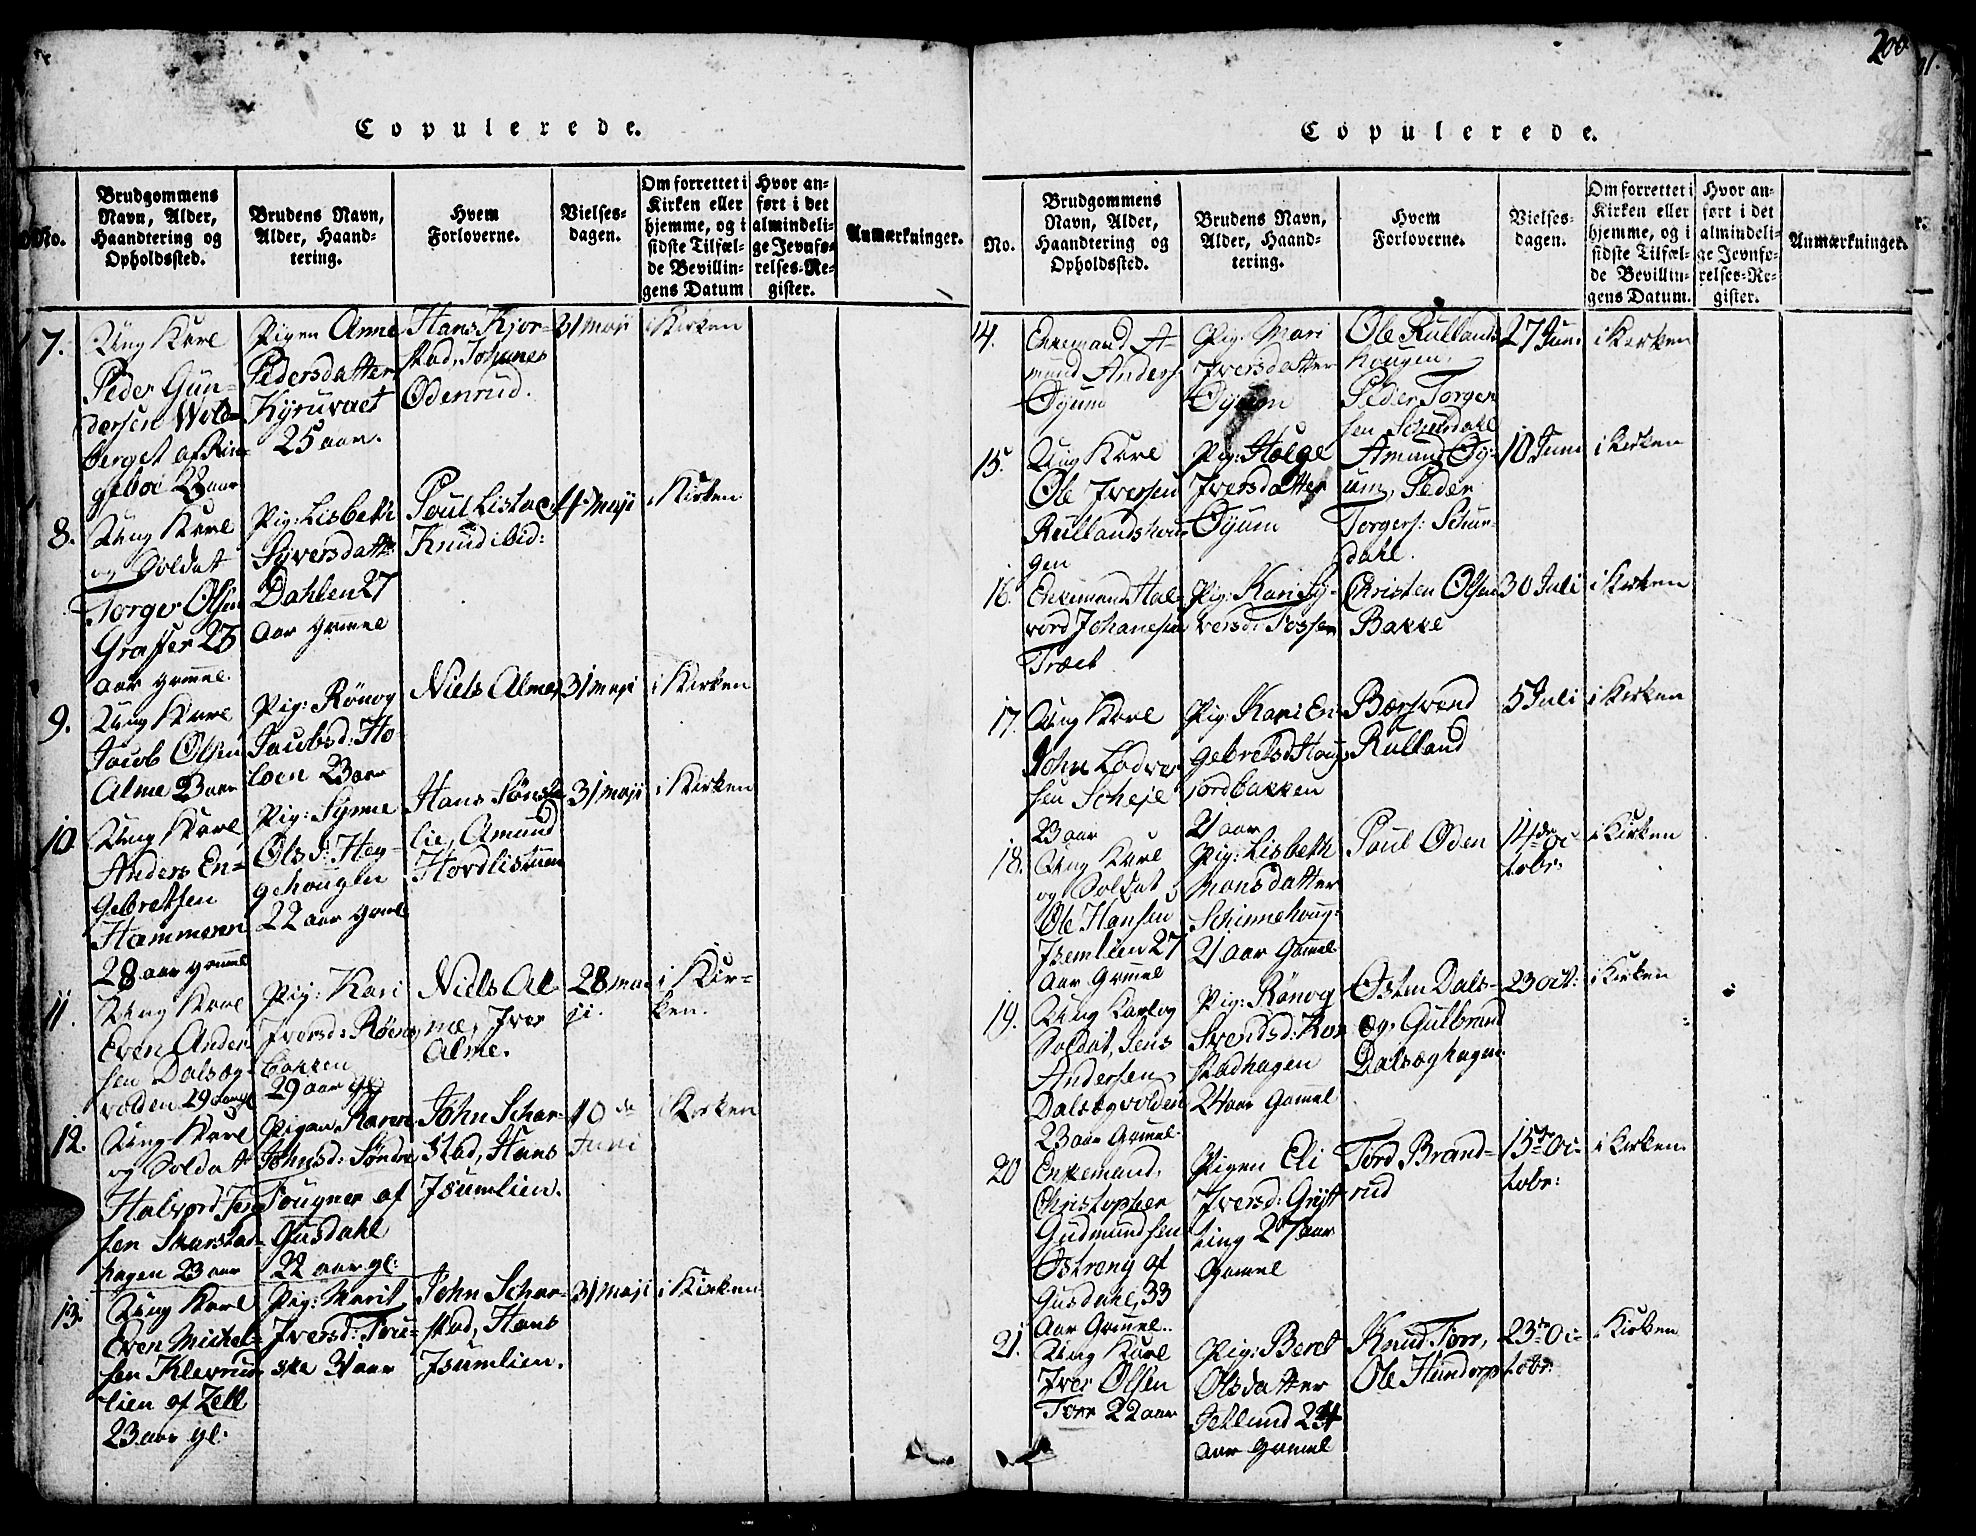 Copulerede.
No.
Brudgommens
Navn, Alder,
Haandtering og
Opholdssted.
Brudens Navn,
Alder, Haand-
tering.
Hvem
Forloverne.
Vielses-
dagen.
Om forrettet i
Kirken eller
hjemme, og i
sidste Tilfæl-
de Bevillin-
gens Datum
Hvor an-
ført i det
almindeli-
ge Jevnfø-
relses-Re-
gister.
Anmærkninger.
7.
Ung Karl
Peder Gün-
dersen Wold-
berget af Rin-
geboe 28 aar
Pigen Anne
Pedersdatter
Kyruvaet
25 aar.
Hans Kjor-
stad, Johanes
Odenrud.
31 Maji
i Kirken
8.
Ung Karl
og Soldat
Torger Olsen
Graffer 23
aar gamel.
Pig: Lisbeth
Syversdatte
Dahlen 27
aar gamel
Poul Listad
Knud ibid:
4 Maji
i Kirken
9.
Ung Karl
Jacob Olsen
Alme 23 aar
Pig: Rönog
Jacobsd: Ho
loen 23 aar
Niels Alme,
31 Maji
i Kirken
10
Ung Karl
Anders En-
gebretsen
Hammeren
28 aar gamel
Pig: Synne
Olsd: Hey-
gehougen
22 aar gamel
Hans Sønste
lie, Amund
Hordlistuen
31 Maji
i Kirken
11.
Ung Karl
Even Ander
sen Dalsæg-
volden 29 aar gl
Pig: Kari
Iversd: Röen
bakken
29 aar gl
Niels Al
me, Iver
Alme.
28 Ma
ji.
i Kir-
ken.
12.
Ung Karl
og Soldat
Halvord
sen Skarstad-
hagen 23 aar
Pigen Karen
Johnsd: Søndre
Tougner af
Gusdahl
22 aar gl:
John Schar-
stad, Hans
Isumlien.
10 de
Juni
i Kirken
13.
Ung Karl
Even Michel-
sen Klevrud
lien af Zell
23 aar gl:
Pig: Marit
Iversd: Fou-
ske 31 aar
John Schar-
stad, Hans
Isumlien.
31 Maji
i Kirken
200
Copulerede.
No.
Brudgommens
Navn, Alder,
Haandtering og
Opholdssted.
Brudens Navn,
Alder, Haand-
tering.
Hvem
Forloverne.
Vielses-
dagen.
Om forrettet i
Kirken eller
hjemme, og i
sidste Tilfæl-
de Bevillin-
gens Datum.
Hvor an-
ført i det
almindeli-
ge Jevnfø-
relses-Re-
gister.
Anmærkninger.
14.
Enkemand A-
mund Anders
Øyum
Pig: Mari
Iversdatter
Øyum
Ole Rullands
hougen,
Peder Torger
sen Schusdahl
27 Juni
i Kirken
15.
Ung Karl
Ole Iversen
Rullandshou
gen
Pig: Helge
Iversdatter
Øyum
Amund Øy-
um, Peder
Torgers: Schus-
dahl.
10 Juni
i Kirken
16.
Enkemand Hal-
vord Johanesen
Træet
Pig: Kari Sy-
versd: Fossen
Christen Olsen
Bakke
30 Juli
i Kirken
17.
Ung Karl
John Lodver
sen Scheje
23 aar
Pig: Kari En
gebretsd: Houg
jordbakken
21 aar
Bærsvend
Rulland
5 Juli
i Kirken
18.
Ung Karl
og Soldat
Ole Hansen
Isemlien 27
aar Gamel
Pig: Lisbeth
Monsdatter
Schinnehoug:
21 aar Gamel
Poul Oden
14 de Oc-
tobr:
i Kirken
19.
Ung Karl og
Soldat, Jens
Andersen
Dalsægvolden
23 aar Gamel.
Pig: Rönog
Svendsd: Kor
stadhagen
24 aar Gamel
Østen Dals-
æg, Gulbrand
Dalsæghagen
23 Oct:
i Kirken
20
Enkemand,
Christopher
Gudmundsen
Ostreng af
Gusdahl, 33
aar Gamel.
Pigen Eli
Iversd: Grytt
ting 27 aar
Gamel
Tord Brand-
rud
15 de Oc-
tobr:
i Kirken.
21.
Ung Karl
Iver Olsen
Torr 22 aar
Pig: Beret
Olsdatter
Jetlund 24
aar gamel
Knud Torr,
Ole Hundorp
23 de Oc-
tobr
i Kirken